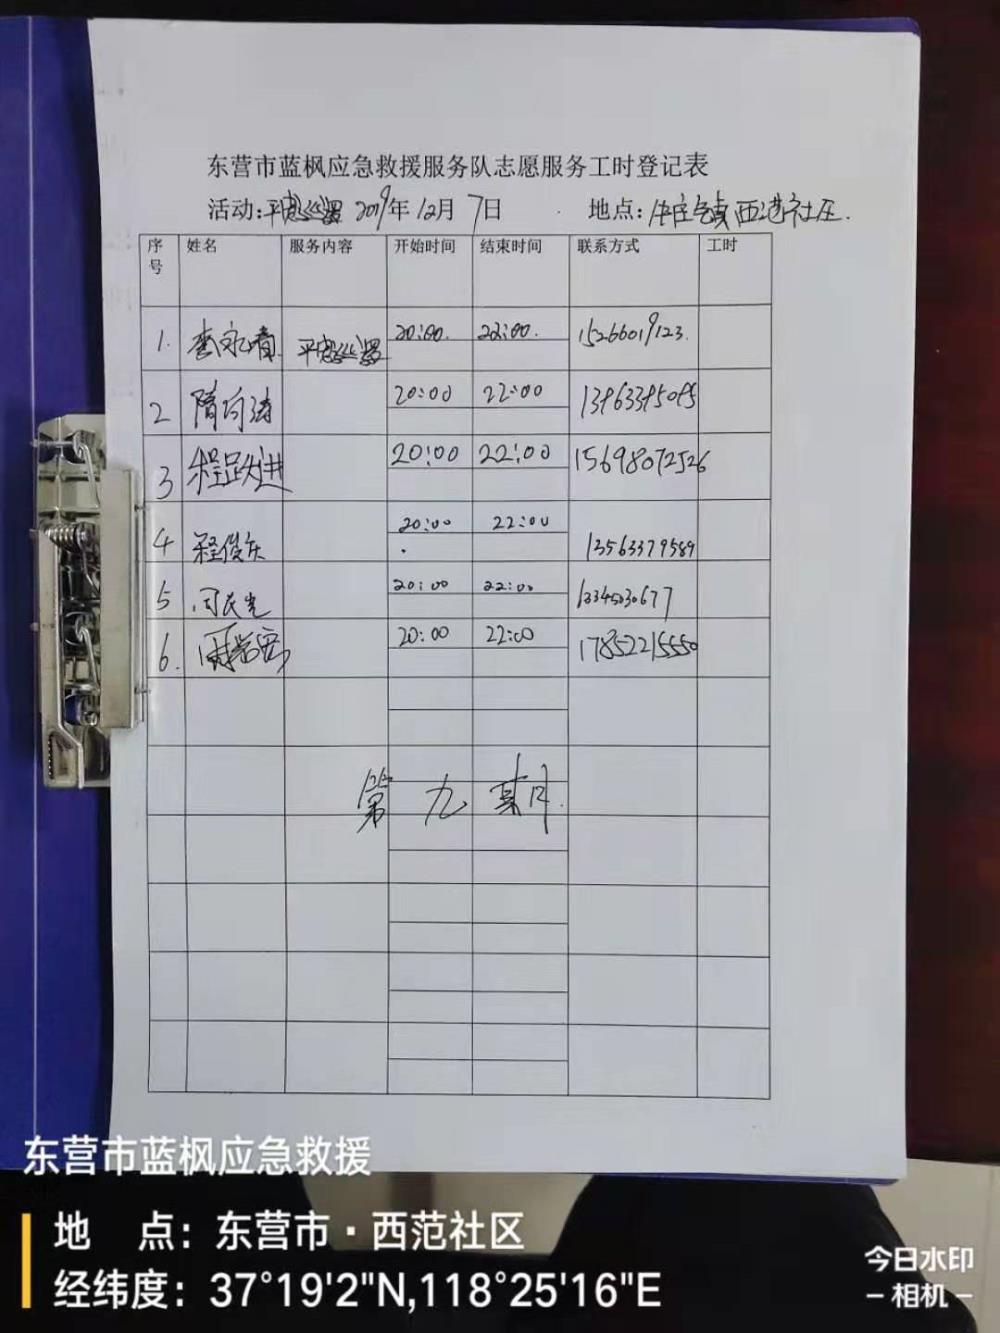 东营市蓝枫应急救援服务队志愿服务工时登记表
活动: 平安巡逻 2019年12月7日 地点: 牛庄镇西范社区.
序号 姓名 服务内容 开始时间 结束时间 联系方式 工时
1. 李永春 平安巡逻 20:00. 22:00. 15266019123.
2 隋向涛 20:00 22:00
3 程跃进 20:00 22:00 15698072526
4 程俊庆 20:00 22:00 13563379589
5 闫民光 20:00 22:00 13345030677
6. 20:00 22:00 17852215550
第九期.
东营市蓝枫应急救援
地 点: 东营市·西范社区
经纬度: 37°19'2"N,118°25'16"E
今日水印
-相机-